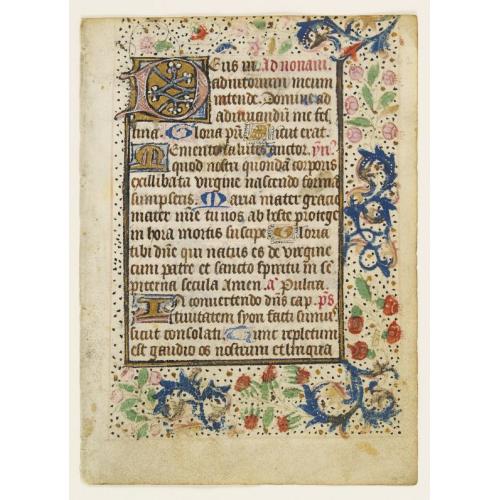 Deus in. ad nonam.
adiutorium meum
intende. Domine ad
adiuvandum me fes
tina. Gloria pri Sicut erat.
Memento salutis auctor. ymn9.
quod nostri quondam corporis
ex illibata virgine nascendo formam
sumpseris. Maria mater gracie
mater mie tu nos ab hoste protege
in hora mortis suscipe Gloria
tibi dne qui natus es de virgine
cum patre et sancto spiritu in se
piterna secula Amen. a Pulcra.
In convertendo dns cap. ps
tivitatem syon facti sumus
sicut consolati. Tunc repletum
est gaudio os nostrum et lingua